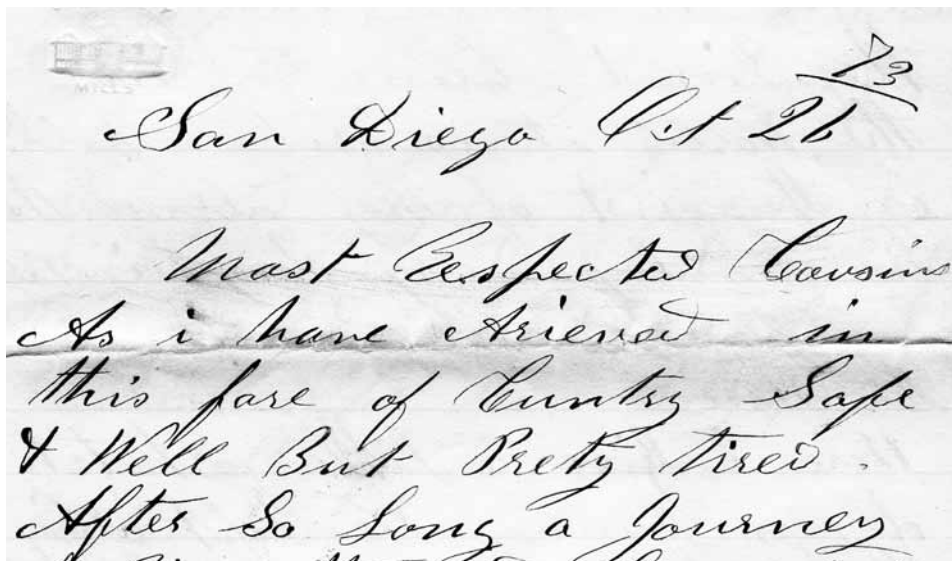 MILLS
73
San Diego Oct 26
Most Respected Cousins
As i have Arieved in
this fare of Cuntry Safe
& Well But Prety tired.
After So Long a Journey